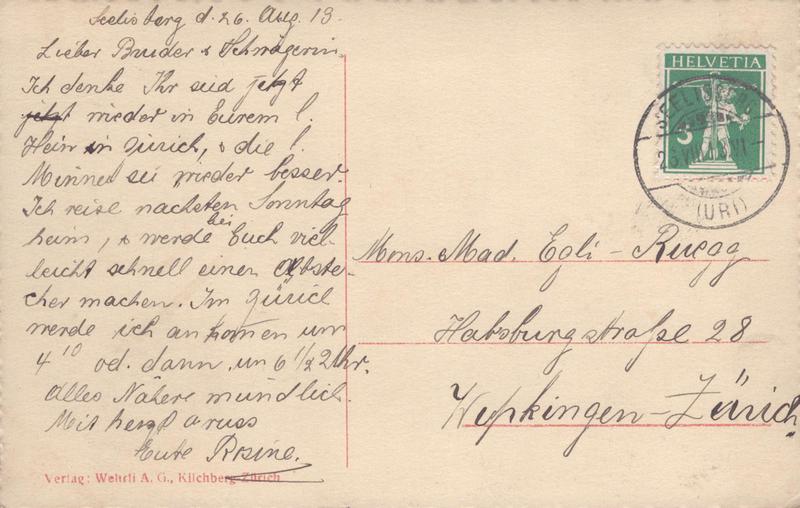 Seelisberg d. 26. Aug. 13.
Lieber Bruder & Schwägerin.
Ich denke Ihr seid jetzt
jetzt wieder in Eurem l.
Heim in Zürich, & die l.
Minna sei wieder besser.
Ich reise nächsten Sonntag
heim, & werde bei Euch viel-
leicht schnell einen Abste-
cher machen. Im Zürich
werde ich ankomen um
4 10 od. dann um 6 1/2 Uhr.
Alles Nähere mündlich.
Mit herzl Gruss
Eure Rosine.
Verlag: Wehrli A. G., Kilchberg-Zürich
HELVETIA
5
SEELISBERG
26 VIII 13 VI
(URI)
Mons. Mad. Egli-Ruegg
Habsburgstraße 28
Wipkingen-Zürich